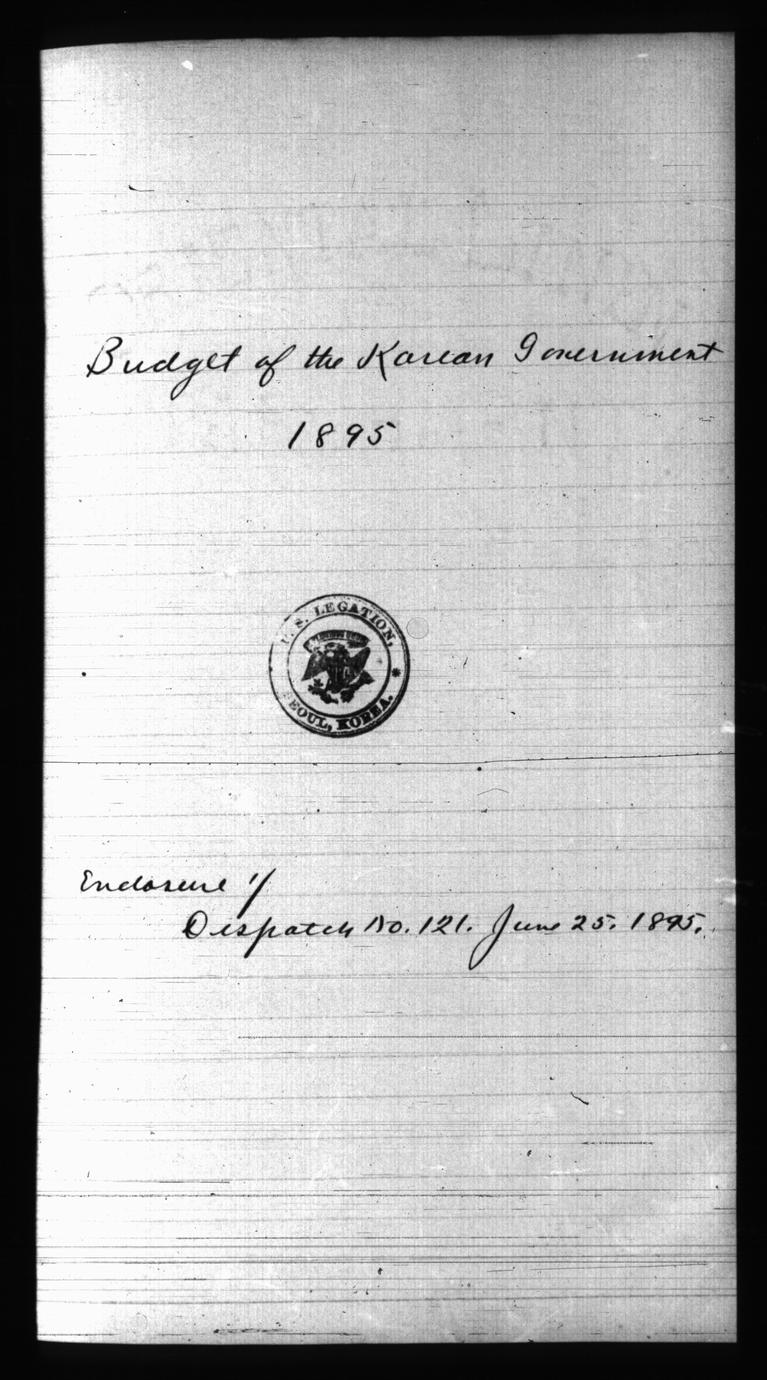 Budget of the Korean Government
1895
U. S. LEGATION,
SEOUL, KOREA.
Enclosure 1/
Dispatch No. 121. June 25. 1895.